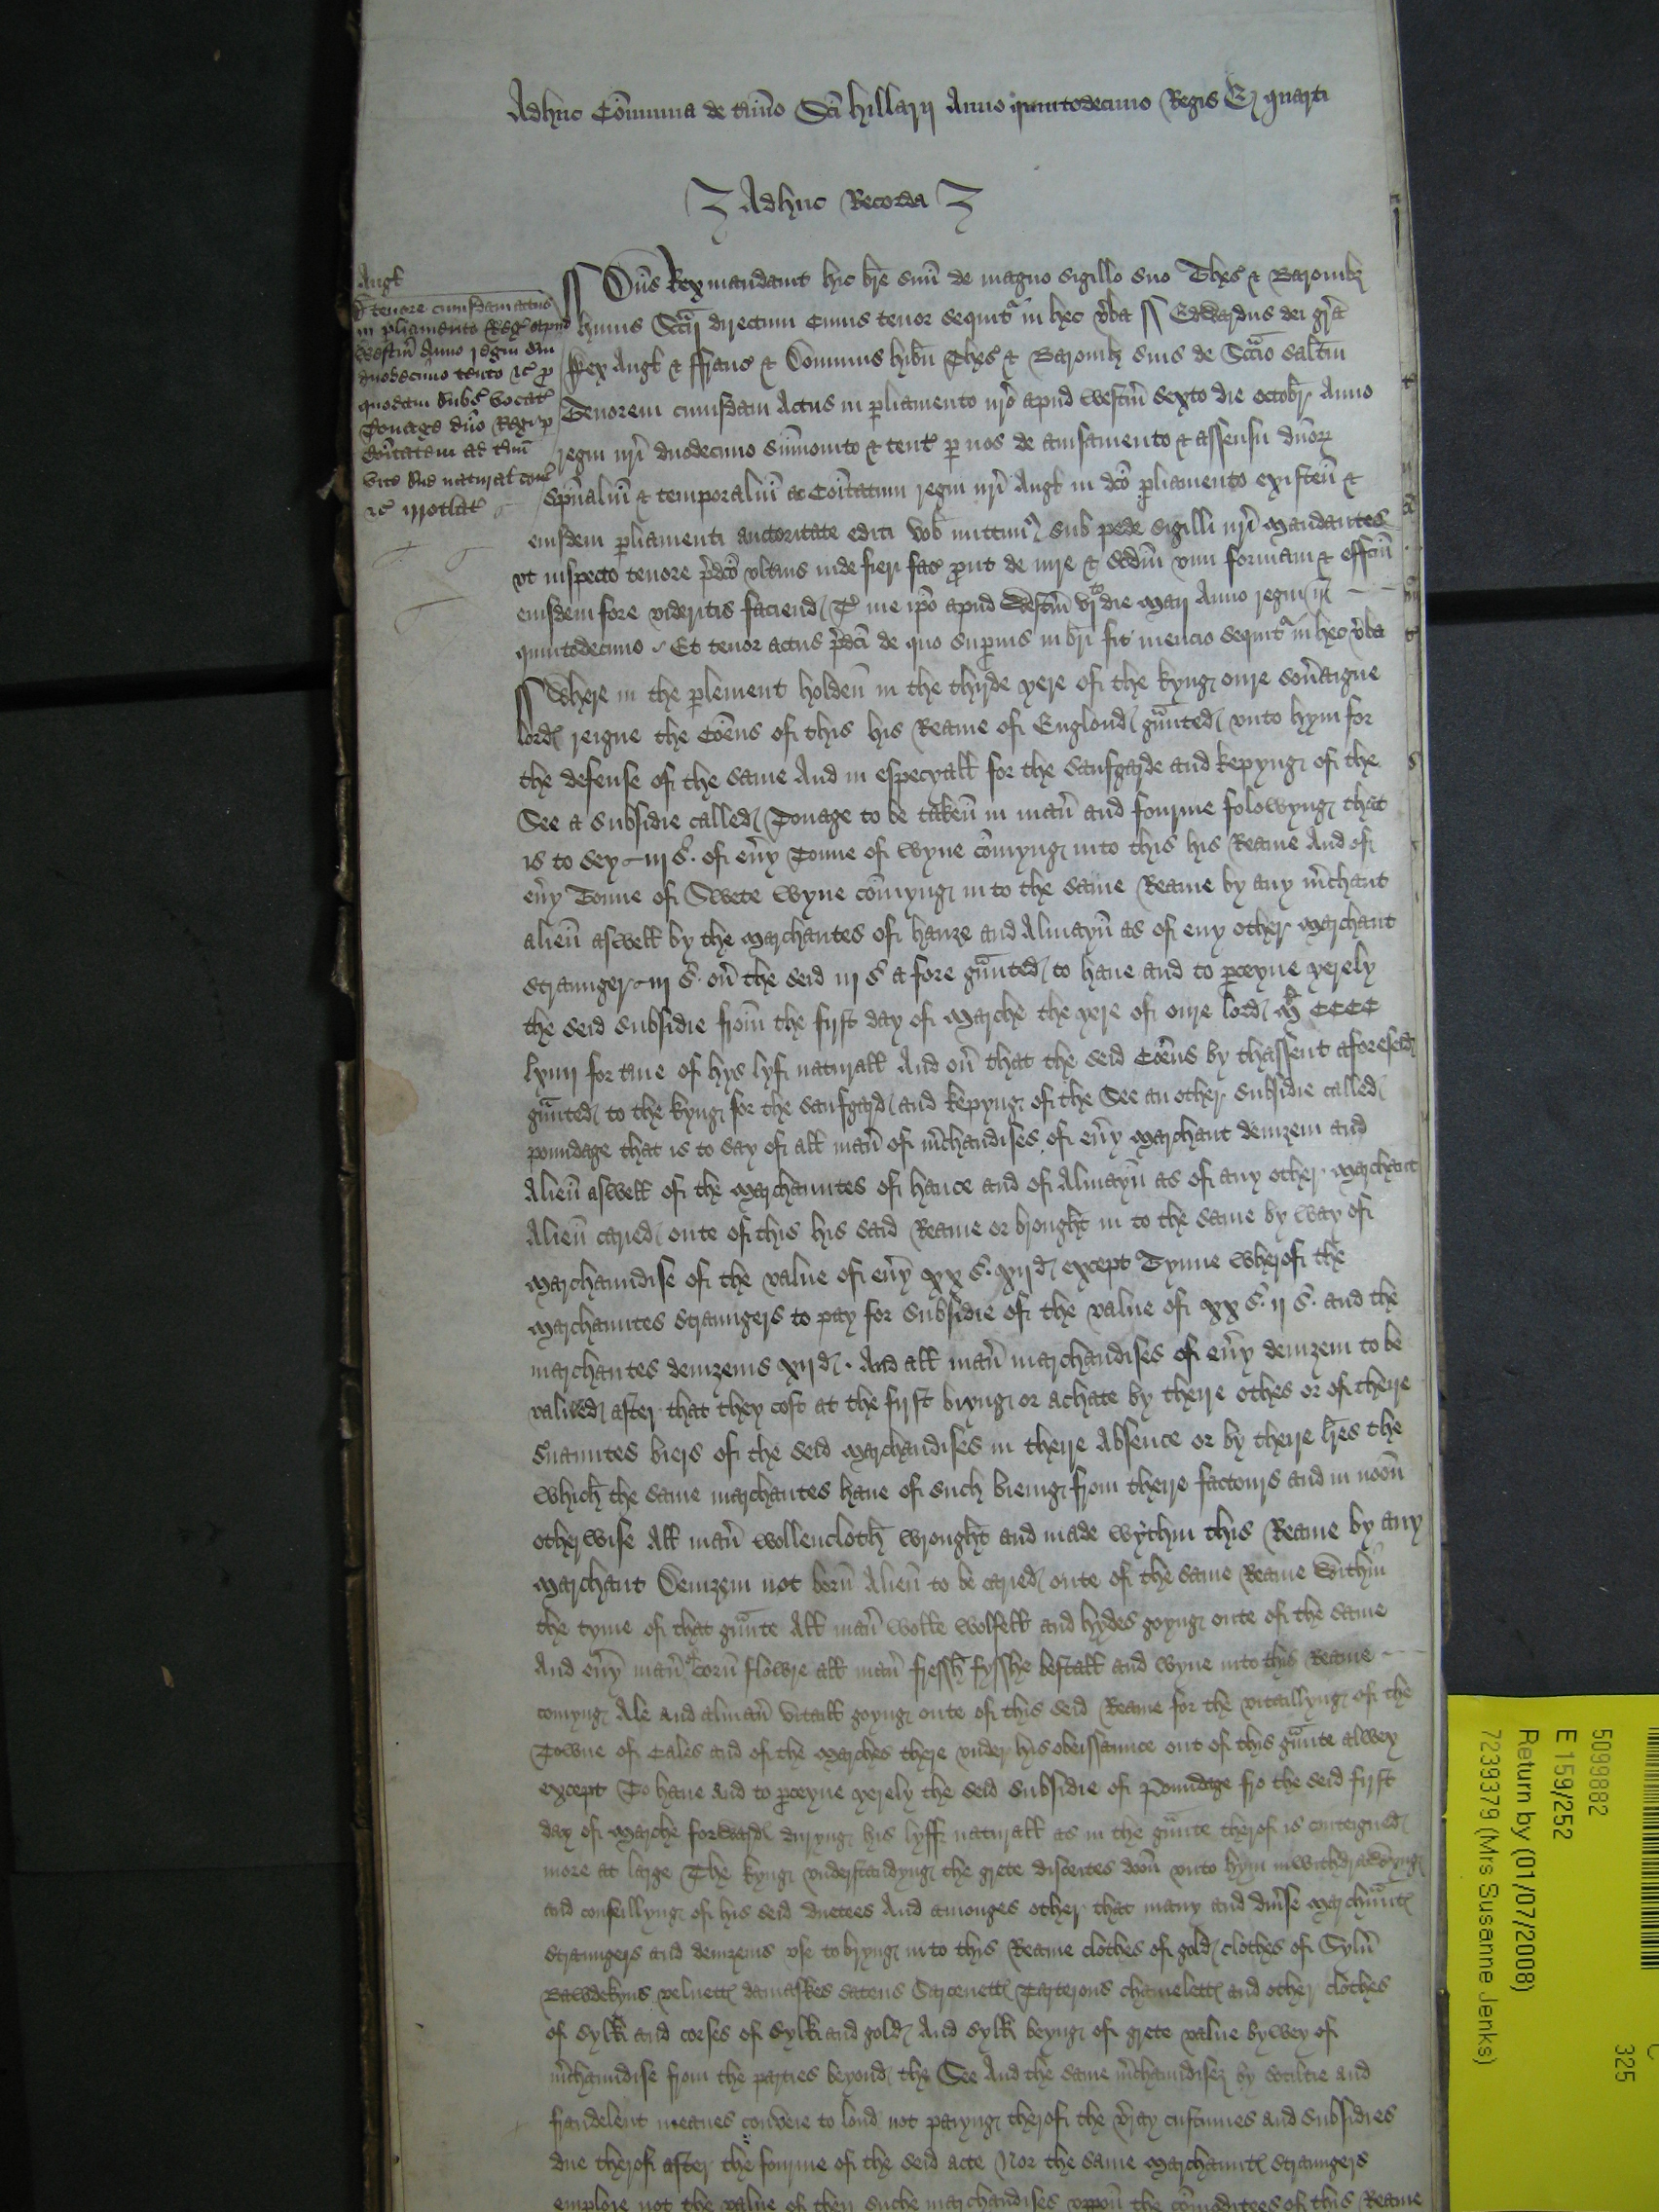 Adhuc Com̄unia de t̄mino Sc̄i hillarij Anno quintodecimo Regis E quarti
Adhuc Recorda
Angł
de tenore cuiusdam actus
in pliamento Reg̃ apud
Westm̄ Anno regni sui
duodecimo tento &c̃ p
quodam subs̃ vocat̃
Tonage dño Regi p
Cōitatem ad t̄m
vite sue natural conc̃
&c̃ irrotlat̃
Dñs Rex mandauit hic br̄e suū de magno sigillo suo Thes̃ & Baronib3
huius Scc̄ij directum Cuius tenor sequit̃ in hec v̄ba Edwardus dei gr̄a
Rex Angł & ffranc̃ & Dominus hib̄n Thes̃ & Baronib3 suis de Scc̄io sal̄tm
Tenorem cuiusdam Actus in pliamento nr̄o apud Westm̄ sexto die Octobr̃ Anno
regni nr̄i duodecimo sūmonito & tent̃ p nos de auisamento & assensu dnōr
sp̄ualiū & temporaliū ac Cōitatum regni nr̄i Angł in dc̄o pliamento existen̄ &
eiusdem pliamenti auctoritate editi vob̄ mittim̃ sub pede sigilli nr̄i Mandantes
vt inspecto tenore p̄dc̄o vl̄tius inde fieri fac̃ prout de iure & sc̄dm vim formam & eff̄cm
eiusdem fore videritis faciend T̃ me ip̄o apud Westm̄ vjto die Maij Anno regni nr̄i
quintodecimo Et tenor actus p̄dc̄i de quo superius in br̄i fit mencio sequit̃ in hec v̄ba
Where in the plement holden̄ in the thirde yere of the kyng oure sou̾aigne
lord reigne the Cōens of this his Reame of Englond grūnted vnto hym for
the defense of the same And in especyall for the saufgarde and kepyng of the
See a subsidie called Tonage to be taken̄ in man̄ and fourme folowyng that
is to sey iij s̃. of eu̾y Tonne of wyne cōmyng into this his Reame And of
eu̾y Tonne of Swete wyne cōmyng in to the same Reame by any m̾chant
alien̄ aswell by the Marchantes of hanze and Almayn̄ as of eny other Marchant
straunger iij s̃. ou̾ the seid iij s̃ a fore grūnted to haue and to pceyue yerely
the seid subsidie from̄ the first day of Marche the yere of oure lord Ml CCCC
lxiiij for tme of hys lyf naturall And ou̾ that the seid Cōens by thassent aforeseid
grūnted to the kyng for the saufgard and kepyng of the See an other subsidie called
poundage that is to say of all man̄ of m̾chandises of eu̾y Marchant denizein and
Alien̄ aswell of the Marchauntes of hance and of Almayn̄ as of any other Marchant
Alien̄ caried oute of this his said Reame or brought in to the same by way of
Marchaundise of the value of eu̾y xx s̃. xij d except Tynne wherof the
Marchauntes straungers to pay for subsidie of the value of xx s̃. ij s̃. and the
marchantes denizeins xij d. And all man̄ marchandises of eu̾y denizein to be
valued after that they cost at the first biyng or achate by theire othes or of theire
s̾uauntes biers of the seid Marchandises in theire Absence or by theire lr̄es the
which the same marchantes haue of such bieing from theire factours and in noon̄
other wise All man̄ wollencloth wrought and made wythin this Reame by any
Marchant Denizein not born̄ Alien̄ to be caried oute of the same Reame withIn
the tyme of that grūnte All man̄ wolle wolfell and hydes goyng oute of the same
And eu̾y man̄ of corn̄ flowre all man̄ fressh fysshe bestall and wyne into this Reame
comyng Ale and alman̄ vitaill goyng oute of this seid Reame for the vitaillyng of the
Towne of Cales and of the Marches there vnder his obeissaunce out of this grūnte alwey
except To haue And to pceyue yerely the seid subsidie of Poundage fro the seid first
day of Marche forward duryng his lyff naturall as in the grūnte therof is conteigned
more at large The kyng vnderstandyng the grete disceites doon̄ vnto hym in withdrawyng
and conseillyng of his seid duetees And amonges other that many and diu̾se Marchūnt̃
straungers and denizeins vse to bryng into this Reame clothes of gold clothes of Sylu̾
Bawdekyns veluett̃ damaskes satens Sarcenett̃ Tarterons chamelett̃ and other clothes
of sylk and corses of sylk and gold And sylk beyng of grete value by wey of
m̾chaundise from the parties beyond the See And the same m̾chaundise3 by sotiltie and
fraudelent meanes conveie to lond not payng therof the v̾ray custumes and subsidies
due therof after the fourme of the seid acte Nor the same Marchaunt̃ straungers
emploie not the value of then suche marchandises vppon̄ the cōmoditees of this Reame
C
325
5099882
E 159/252
Return by (01/07/2008)
7239379 (Mrs Susanne Jenks)